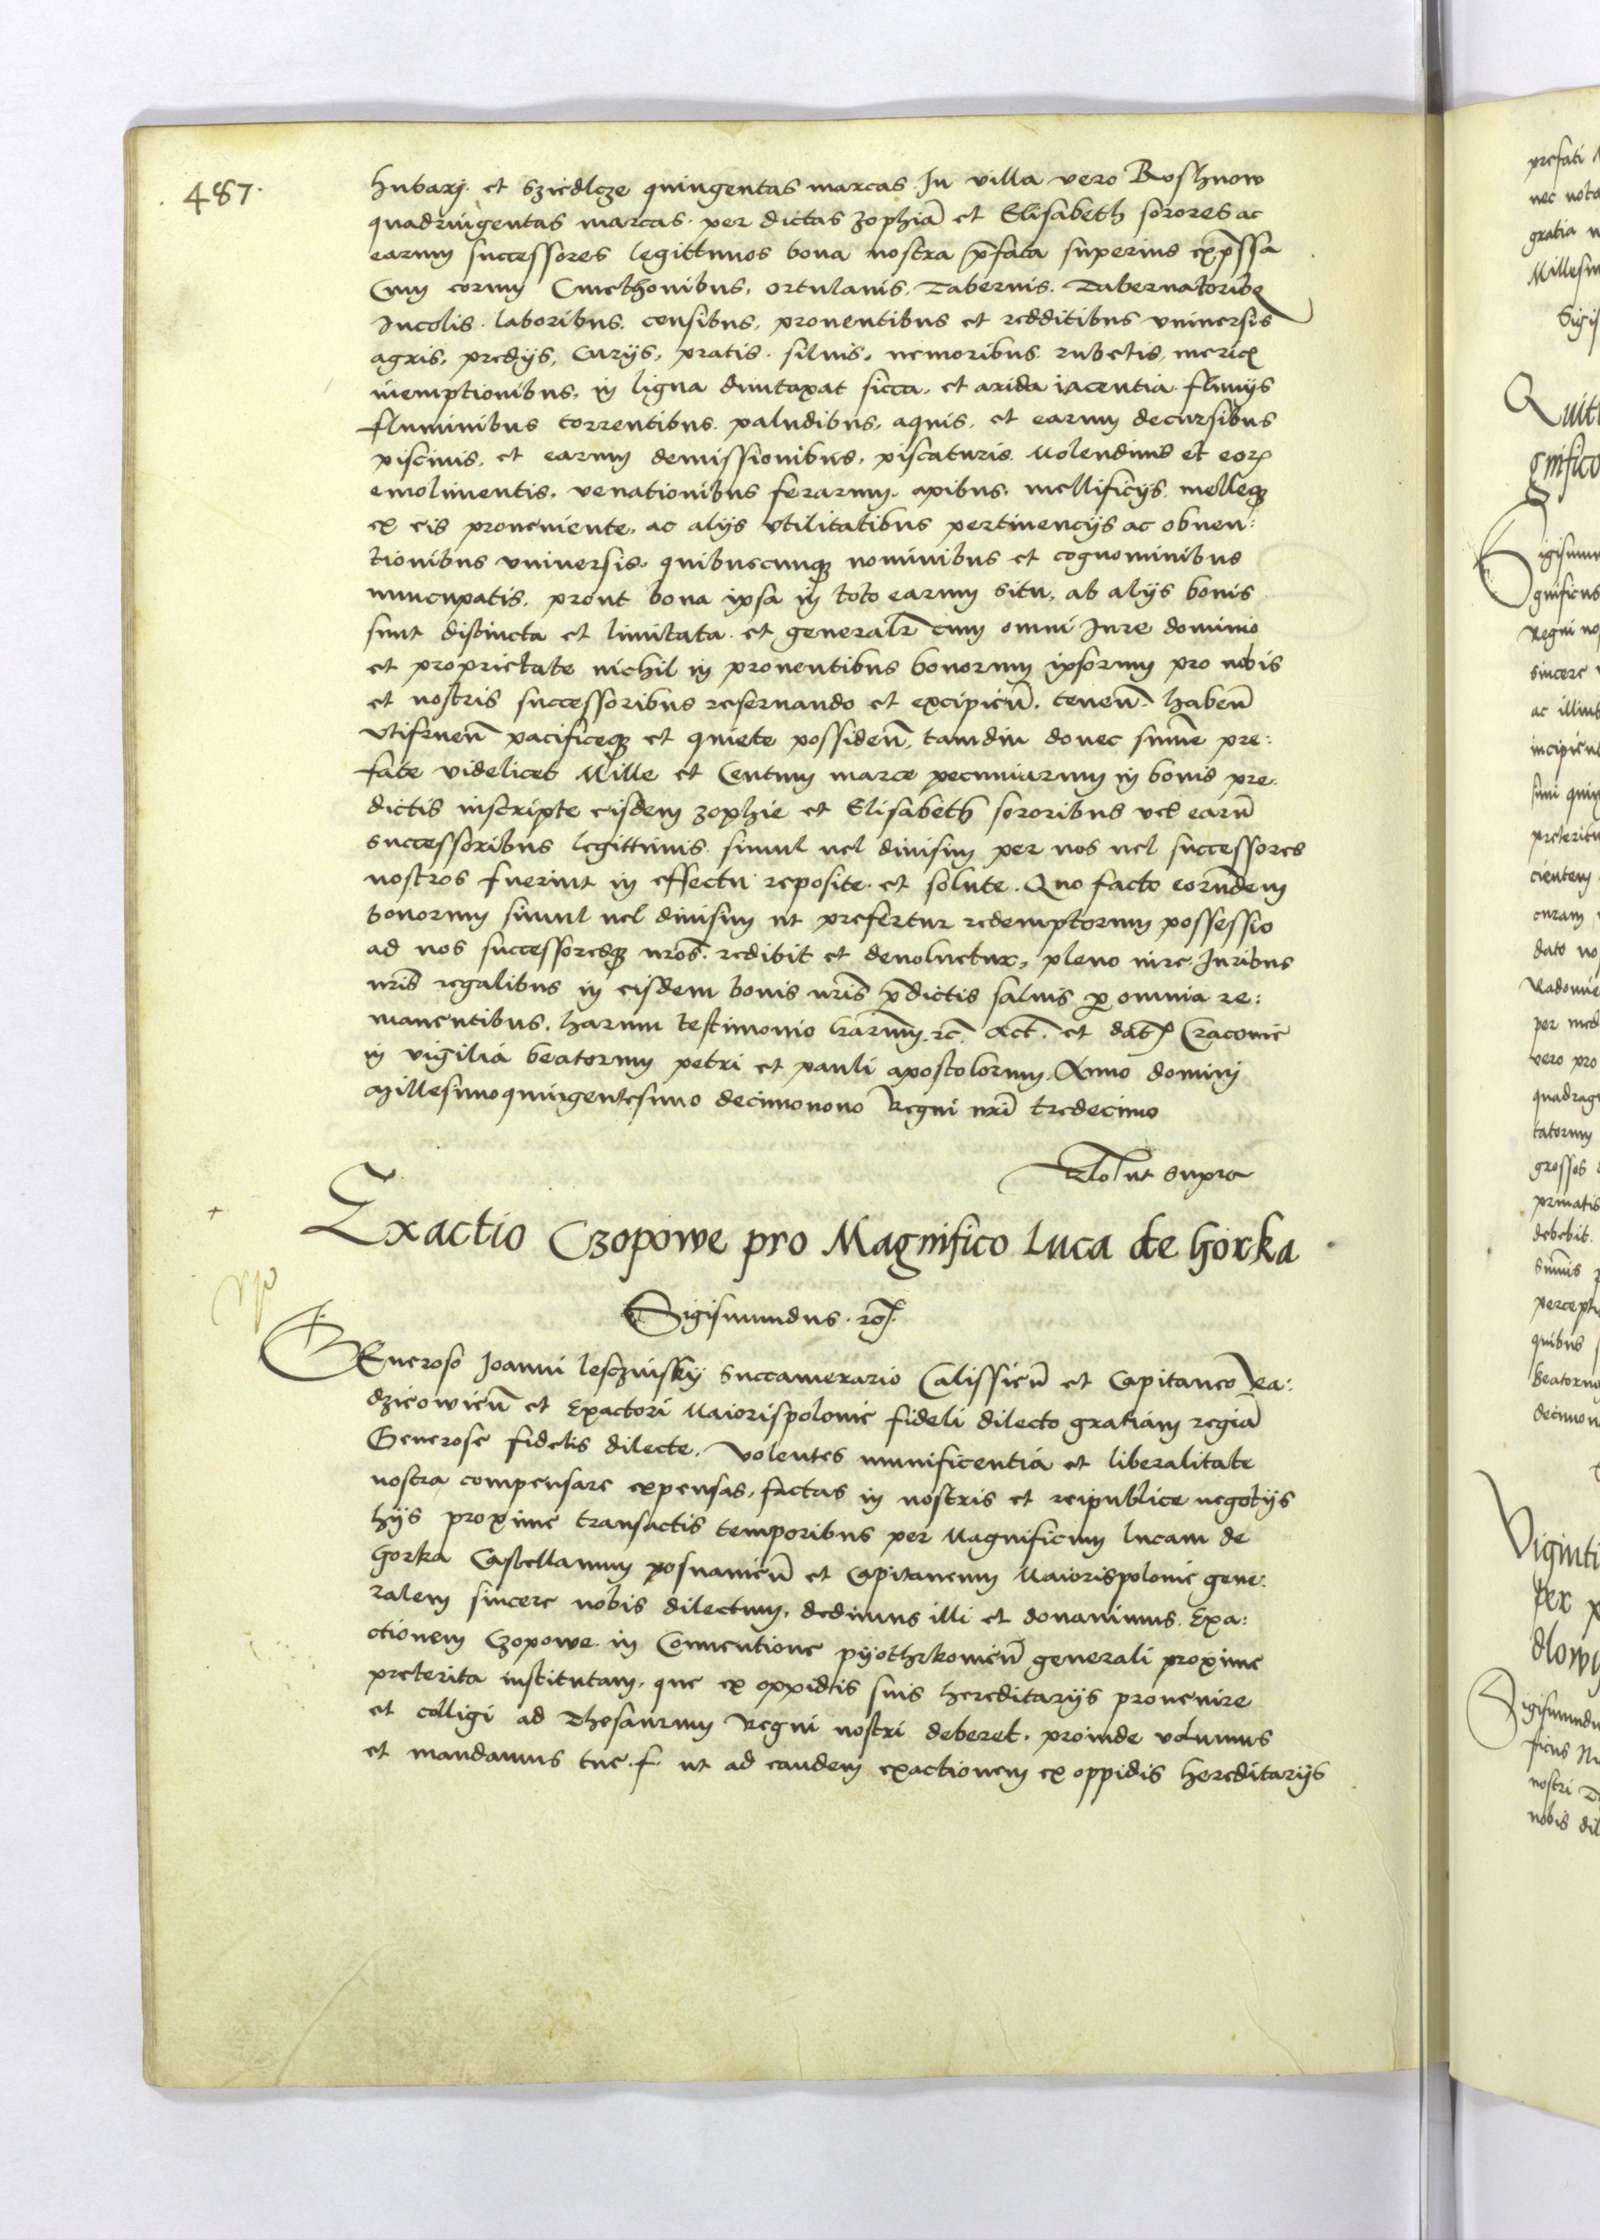 487.
hubarÿ. et Sziedlcze quingentas marcas In villa vero Roshnow
quadringentas marcas. per dictas zophiā et Elisabeth sorores ac
earum successores legittimos bona nostra p̄fata superius exp̄ssa
Cum eorum Cmethonibus, ortulanis, Tabernis. Tabernatoribꝫ
Incolis. laboribus. censibus, prouentibus et redditibus vniuersis
agris, predijs, Curijs, pratis. siluis, nemoribus. rubetis, mericꝭ
inemptionibus, in ligna duntaxat sicca, et arida iacentia. fluuijs
fluminibus torrentibus. paludibus, aquis, et earum decursibus
piscinis, et earum demissionibus, piscaturis. Molendinis et eorꝝ
emolimentis, venationibus ferarum, apibus, mellificijs. melleqꝫ
ex eis proueniente, ac alijs vtilitatibus pertinencijs ac obuen:
tionibus vniuersis, quibuscunqꝫ nominibus et cognominibus
nuncupatis, prout bona ipsa in toto earum situ, ab alijs bonis
sunt distincta et limitata. et generalr̄ cum omni Iure dominio
et proprietate nichil in prouentibus bonorum ipsorum pro nobis
et nostris successoribus reseruando et excipien̄. tenen̄. haben̄
vtifruen̄ pacificeqꝫ et quiete possiden̄, tamdiu donec sum̄e pre:
fate videlicet Mille et Centum marce pecuniarum in bonis pre:
dictis inscripte eisdem zophie et Elisabeth sororibus vel earū
successoribus legittimis simul vel diuisim per nos vel successores
nostros fuerint in effectu reposite. et solute. Quo facto eorūdem
bonorum simul vel diuisim ut prefertur redemptorum possessio
ad nos successoresqꝫ nr̄os. redibit et deuoluetur, pleno iure. Iuribus
nr̄is regalibus in eisdem bonis nr̄is p̄dictis saluis ꝑ omnia re:
manentibus. harum testimonio lr̄arum. rc̄. Act̄. et datꝭ Cracouie
in vigilia beatorum petri et pauli apostolorum. Anno domini
Millesimoquingentesimo decimonono Regni nr̄i tredecimo
Rlo ut supra
+
Exactio Czopowe pro Magnifico Luca de Gorka
Sigismundus. rc̄.
GEneroso Joanni lesczinskÿ Succamerario Calissien̄ et Capitaneo Ra:
dzieowien̄ et Exactori Maiorispolonie fideli dilecto gratiam regiā
Generose fidelis dilecte. Volentes munificentia et liberalitate
nostra compensare expensas, factas in nostris et reipublice negotijs
hijs proxime transactis temporibus per Magnificum lucam de
Gorka Castellanum posnanien̄ et Capitaneum Maiorispolonie gene:
ralem sincere nobis dilectum, dedimus illi et donauimus. Exa:
ctionem Czopowe in Conuentione pÿothrkouien̄ generali proxime
preterita institutam, que ex oppidis suis hereditarijs prouenire
et colligi ad Thesaurum Regni nostri deberet. proinde volumus
et mandamus tue. f. ut ad eandem exactionem ex oppidis hereditarijs